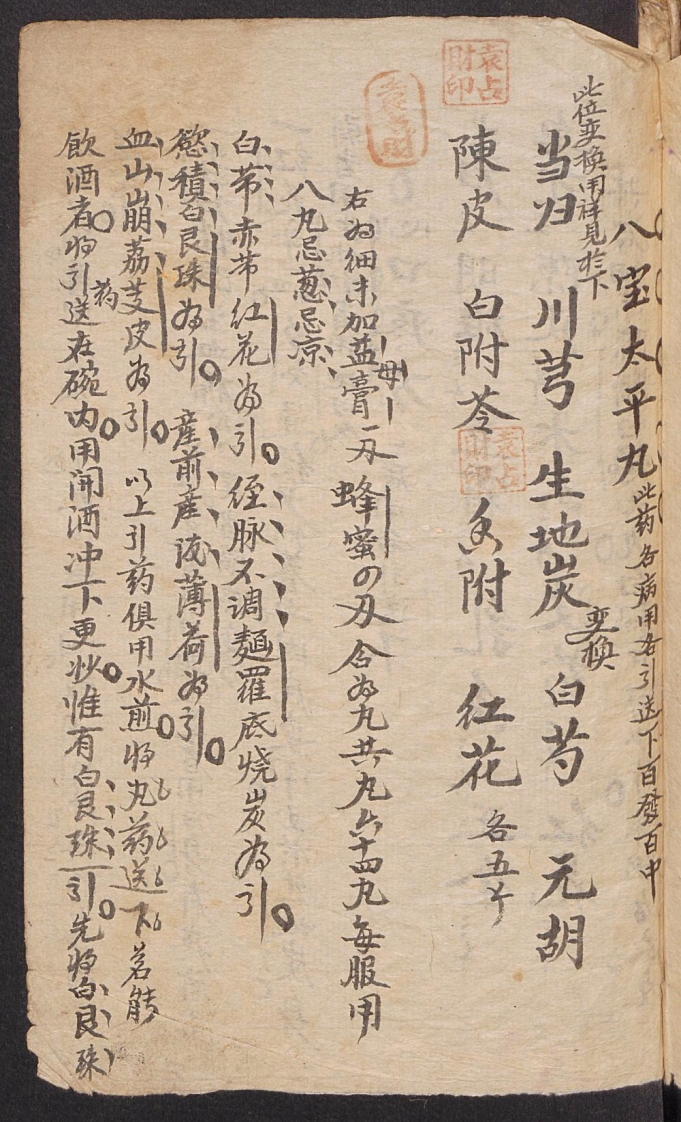 八宝太平丸 此药各病用各引送下百發百中
此位变換用祥見於下
当归 川芎 生地炭 变換 白芍 元胡
陳皮 白附苓 香附 红花 各五
右為细末加益母膏一刄蜂蜜四刄合為丸共丸六十四丸每服用
八丸忌葱忌凉
白带赤带红花為引 経脉不调麵羅底烧炭為引
慾積白良珠為引 產前產後薄荷為引
血山崩荔芰皮為引 以上引药俱用水煎將丸药送下若能
飲酒者將引药送在碗内用開酒冲下更妙惟有白良珠引先將白良珠
袁占財印
袁占財印